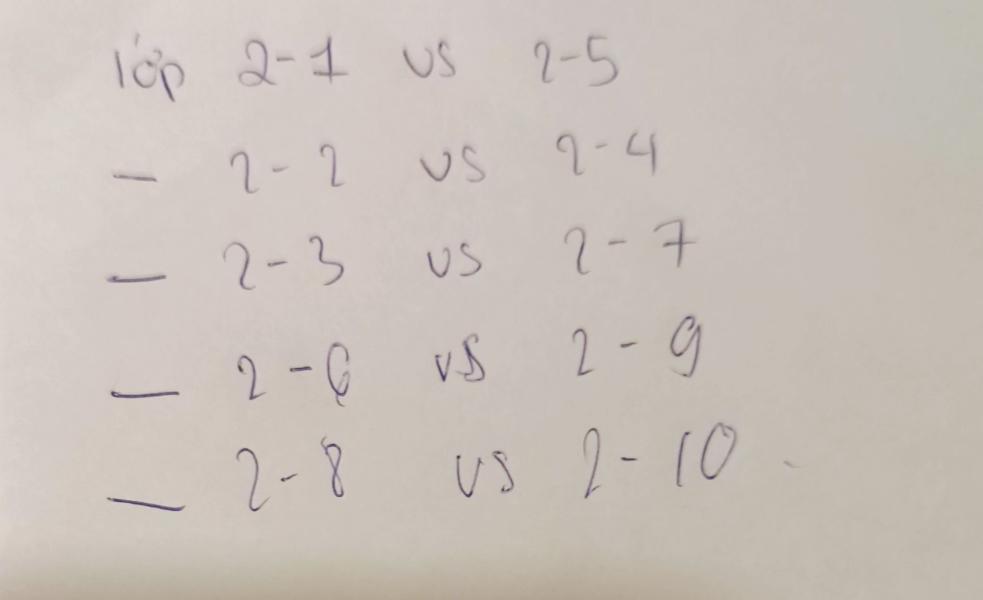 lớp 2-1 vs 2-5
— 2-2 vs 2-4
— 2-3 vs 2-7
— 2-6 vs 2-9
— 2-8 vs 2-10